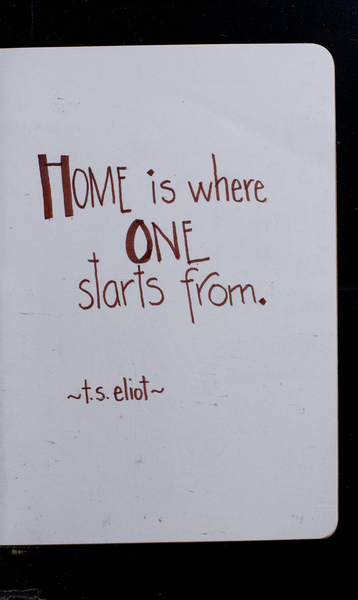 HOME is where
ONE
starts from.
~t.s. eliot~